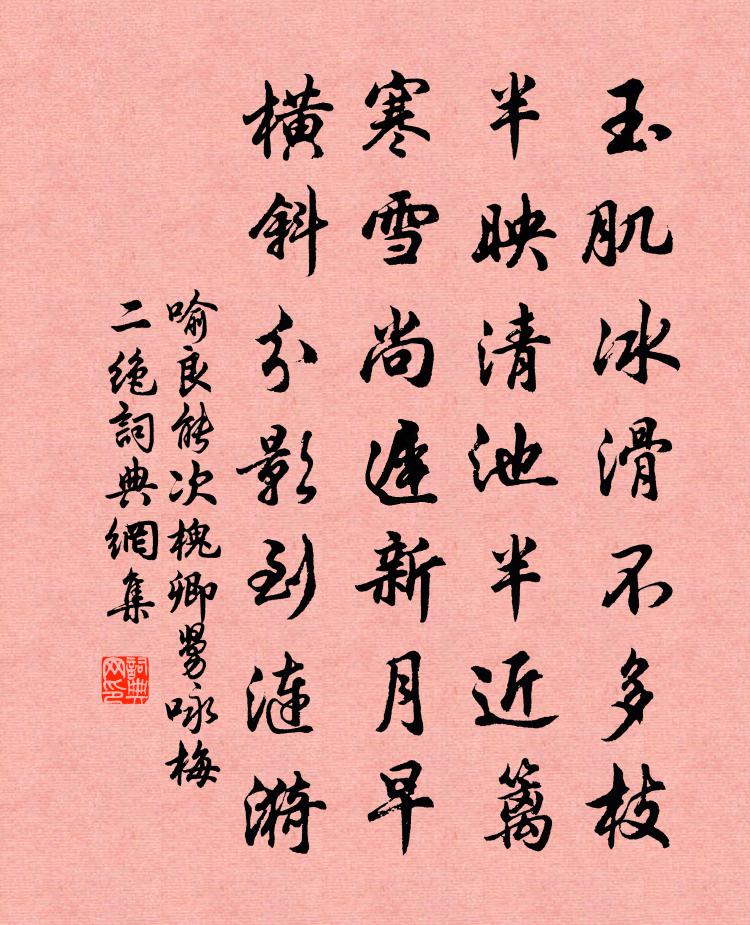 玉肌冰滑不多枝
半映清池半近篱
寒雪尚遲新月早
橫斜分影到漣漪
喻良能次槐卿舅咏梅
二绝詞典網集
詞典
网印